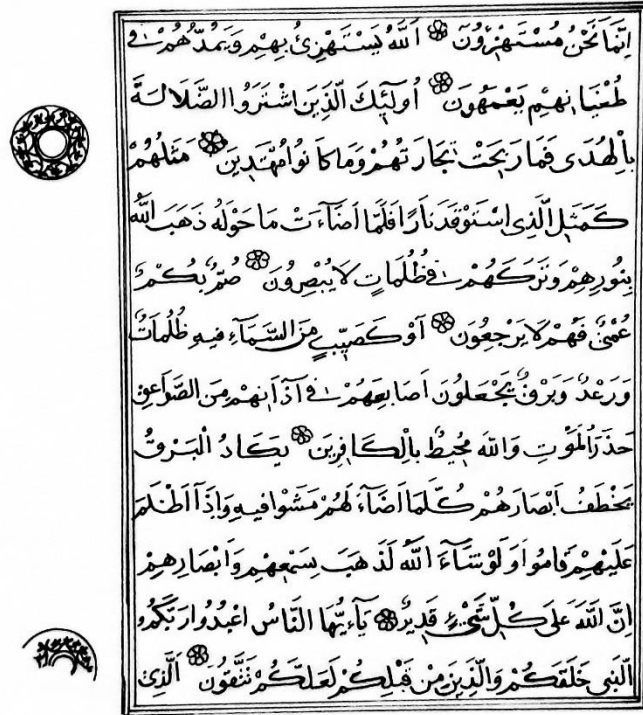 اِنَّمَا نَحْنُ مُسْتَهْزِؤُنَ ۝ اَللّٰهُ يَسْتَهْزِئُ بِهِمْ وَيَمُدُّهُمْ فِى
طُغْيَانِهِمْ يَعْمَهُونَ ۝ اُولٰٓئِكَ الَّذِينَ اشْتَرَوُا الضَّلَالَةَ
بِالْهُدَى فَمَا رَبِحَتْ تِجَارَتُهُمْ وَمَا كَانُوا مُهْتَدِينَ ۝ مَثَلُهُمْ
كَمَثَلِ الَّذِى اسْتَوْقَدَ نَارًا فَلَمَّا اَضَآءَتْ مَا حَوْلَهُ ذَهَبَ اللّٰهُ
بِنُورِهِمْ وَتَرَكَهُمْ فِى ظُلُمَاتٍ لَا يُبْصِرُونَ ۝ صُمٌّ بُكْمٌ
عُمْىٌ فَهُمْ لَا يَرْجِعُونَ ۝ اَوْ كَصَيِّبٍ مِنَ السَّمَآءِ فِيهِ ظُلُمَاتٌ
وَرَعْدٌ وَبَرْقٌ يَجْعَلُونَ اَصَابِعَهُمْ فِى آذَانِهِمْ مِنَ الصَّوَاعِقِ
حَذَرَ الْمَوْتِ وَاللّٰهُ مُحِيطٌ بِالْكَافِرِينَ ۝ يَكَادُ الْبَرْقُ
يَخْطَفُ اَبْصَارَهُمْ كُلَّمَا اَضَآءَ لَهُمْ مَشَوْا فِيهِ وَاِذَا اَظْلَمَ
عَلَيْهِمْ قَامُوا وَلَوْ شَآءَ اللّٰهُ لَذَهَبَ بِسَمْعِهِمْ وَاَبْصَارِهِمْ
اِنَّ اللّٰهَ عَلَى كُلِّ شَىْءٍ قَدِيرٌ ۝ يَآءَيُّهَا النَّاسُ اعْبُدُوا رَبَّكُمُ
الَّذِى خَلَقَكُمْ وَالَّذِينَ مِنْ قَبْلِكُمْ لَعَلَّكُمْ تَتَّقُونَ ۝ اَلَّذِى